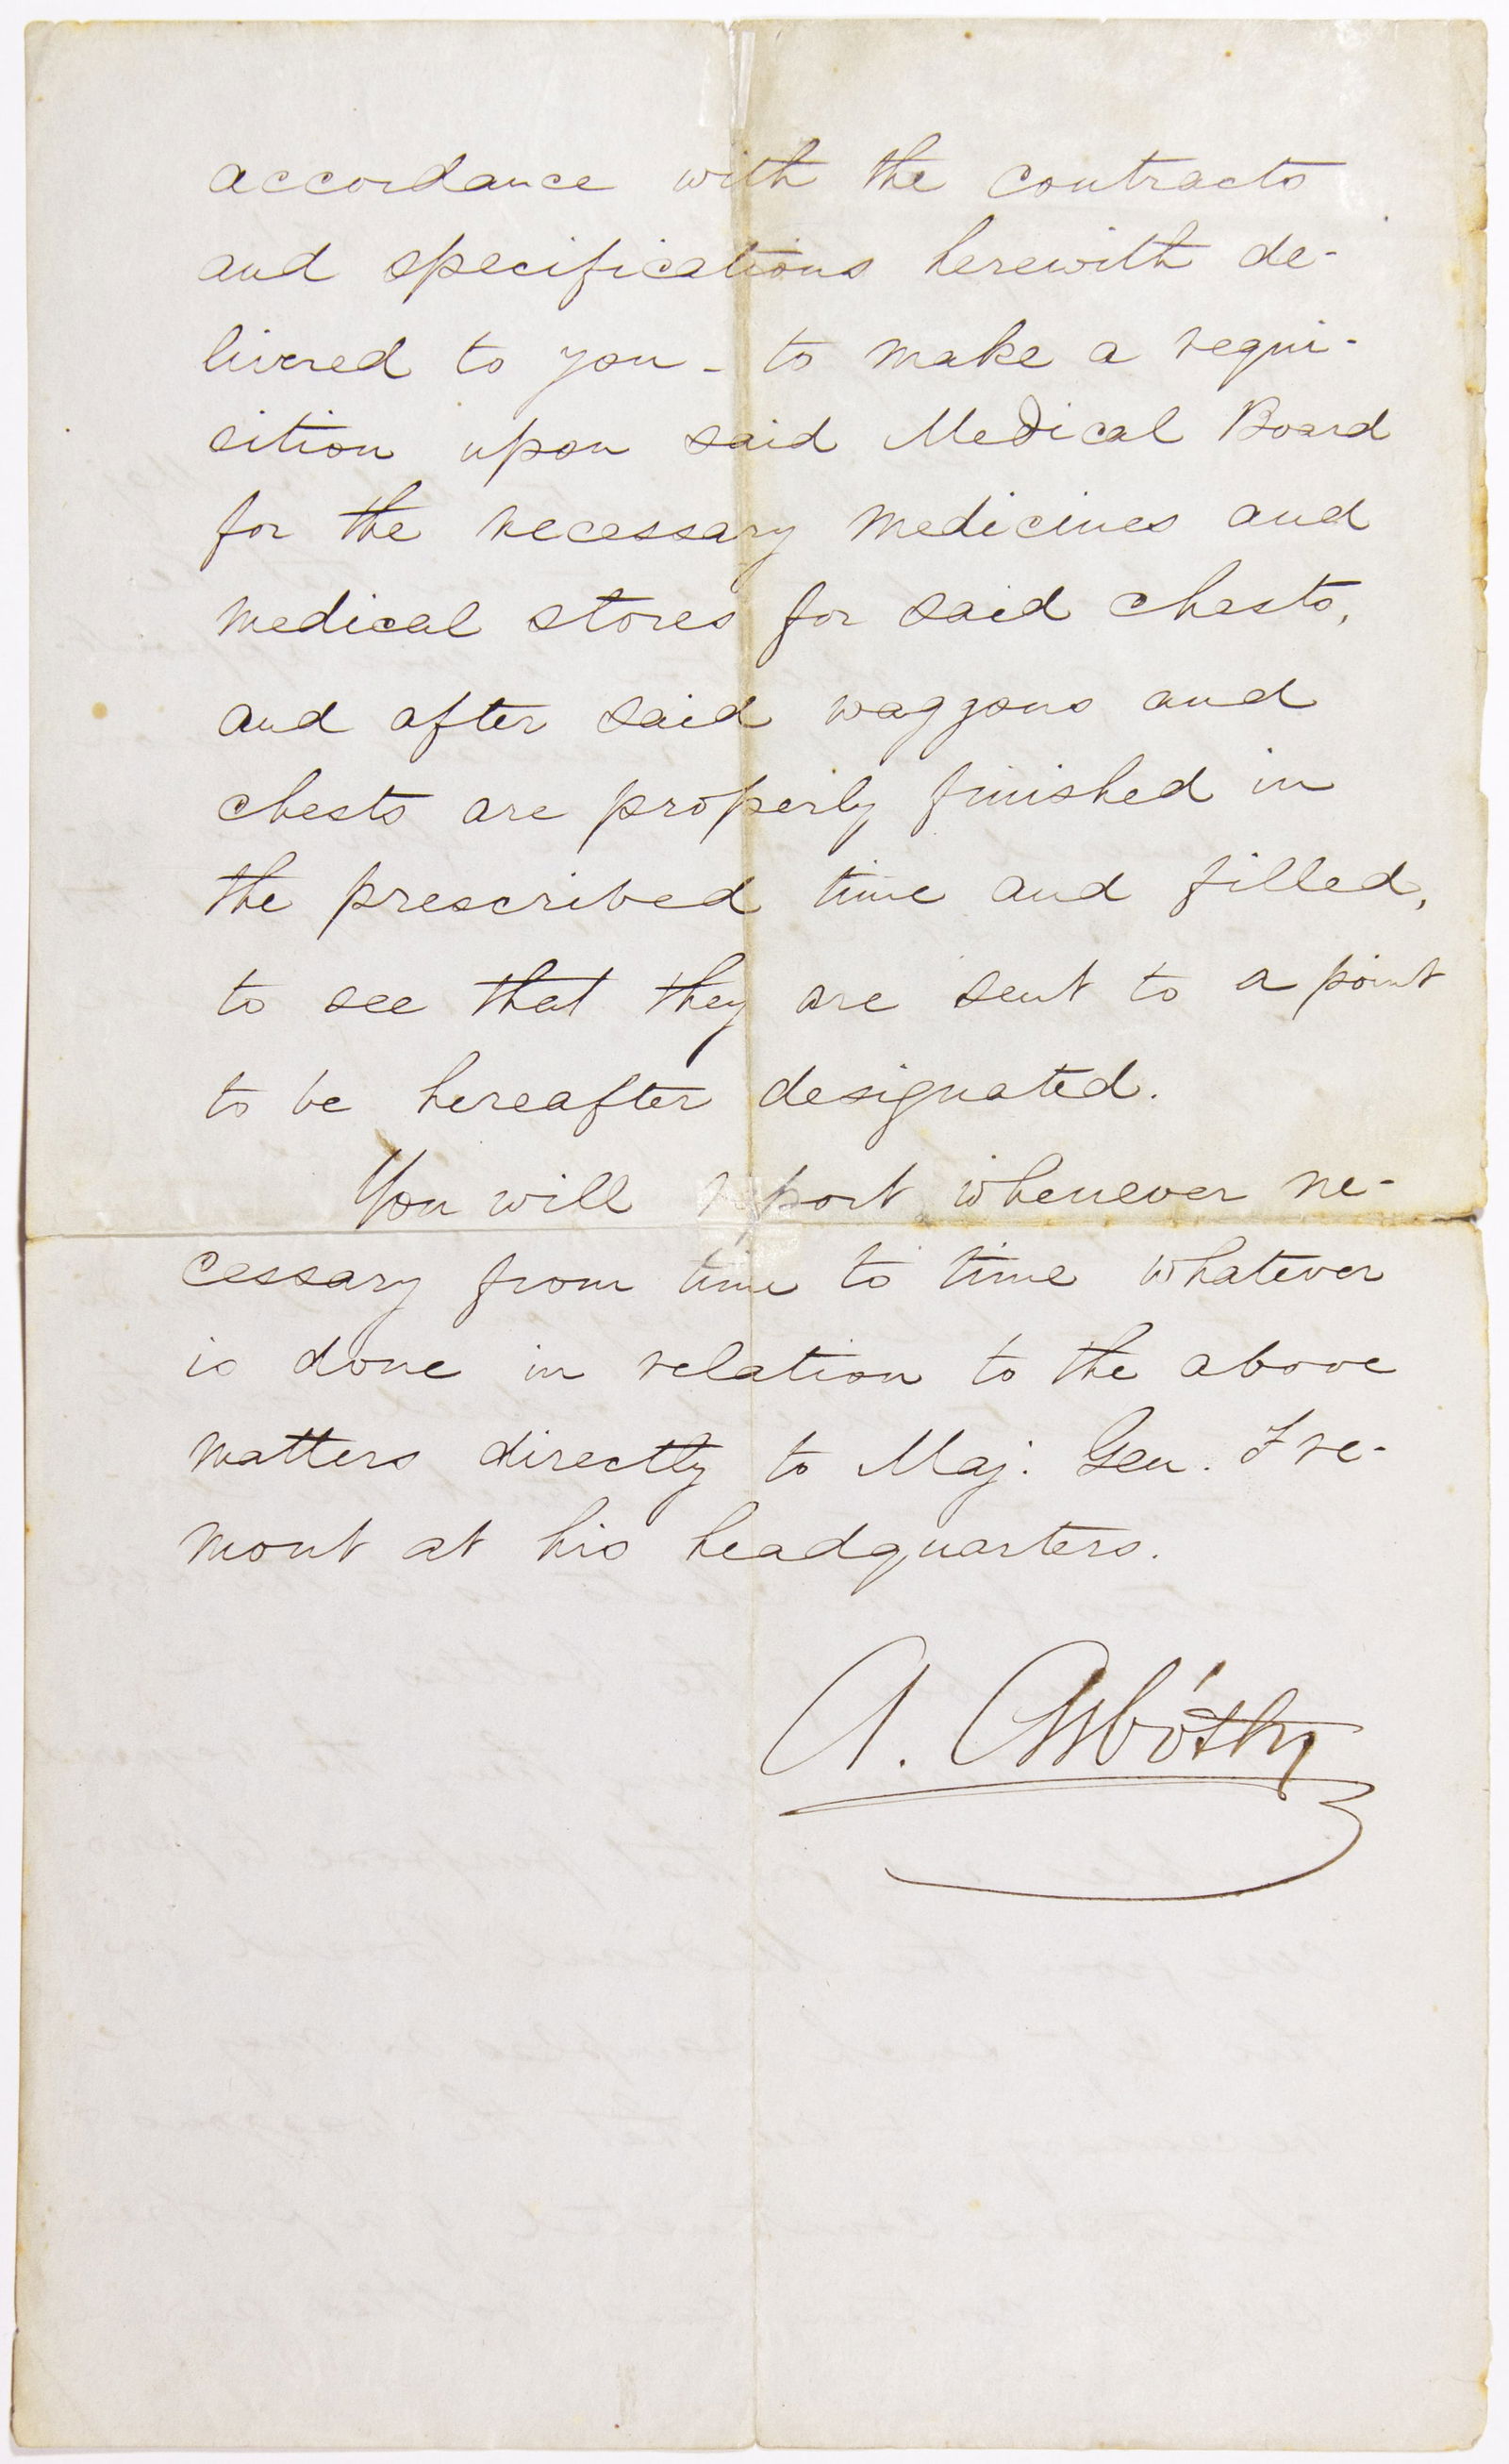 accordance with the contracts
and specifications herewith de-
livered to you - to make a requi-
sition upon said Medical Board
for the necessary medicines and
medical stores for said chests,
and after said waggons and
chests are properly finished in
the prescribed time and filled,
to see that they are sent to a point
to be hereafter designated.
You will report whenever ne-
cessary from time to time whatever
is done in relation to the above
matters directly to Maj. Gen. Fre-
mont at his headquarters.
A. Asbóth